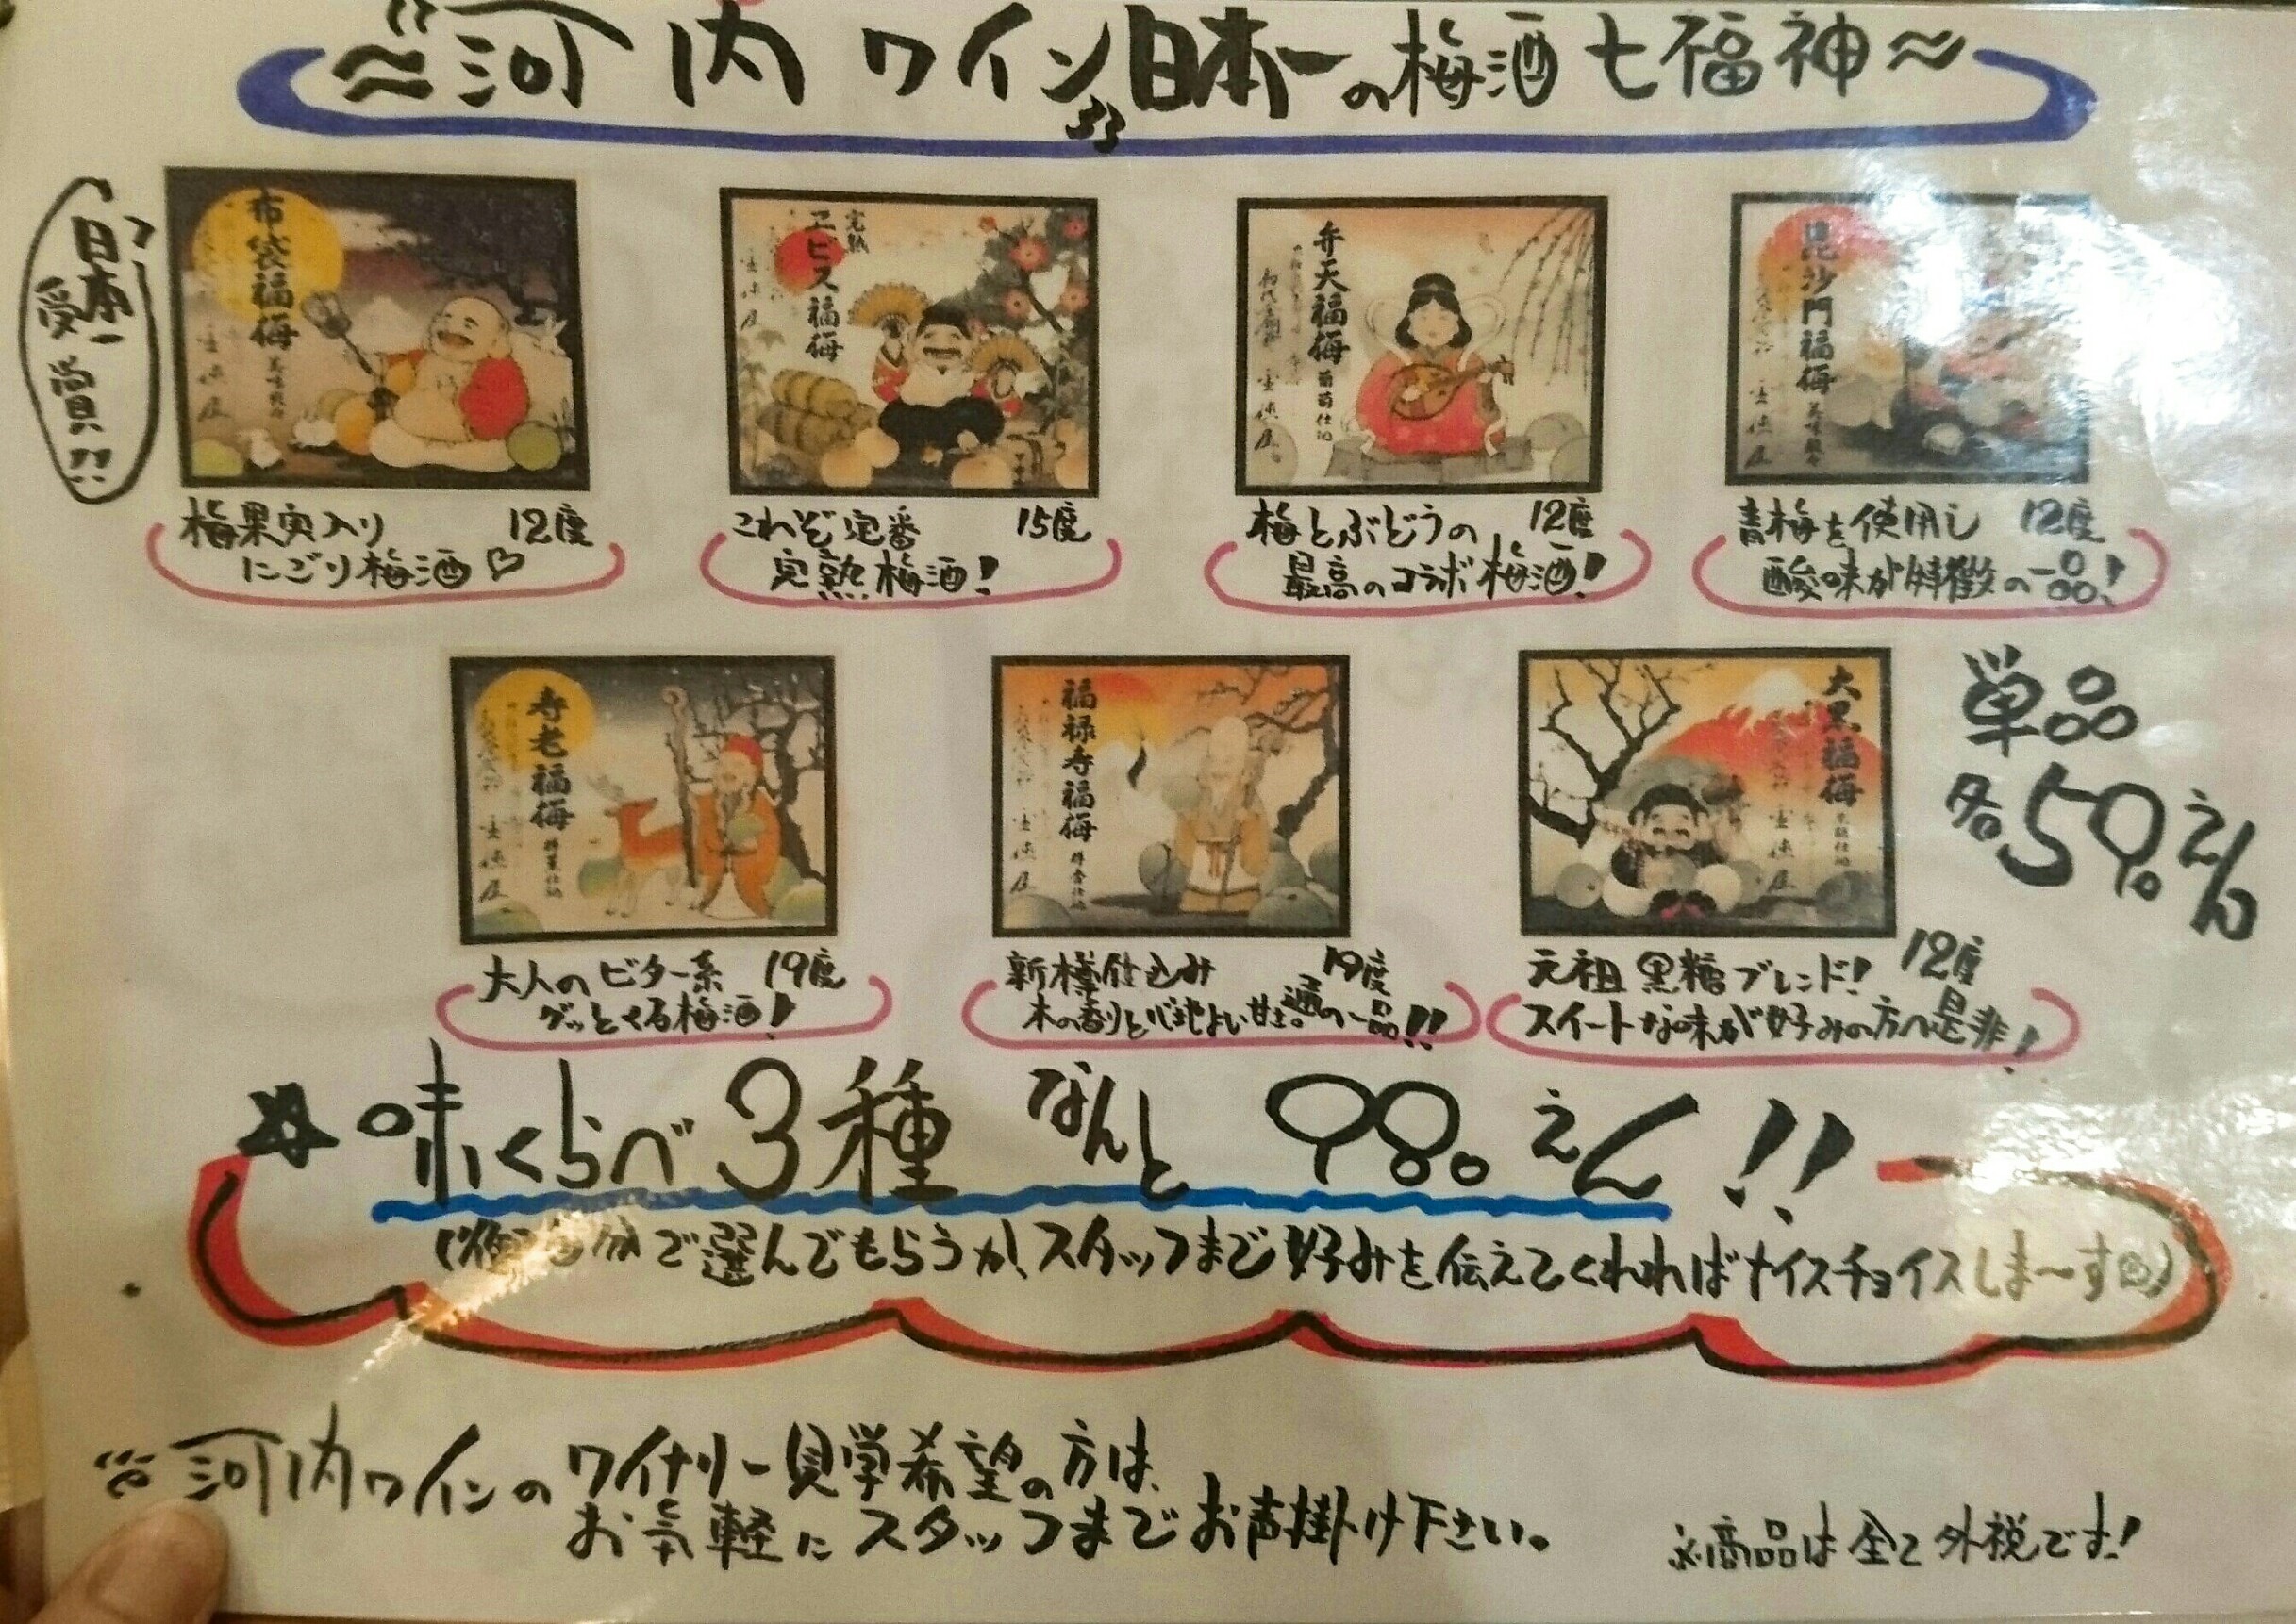 〜"河内ワイン"日本一の梅酒七福神〜
"日本一"
受賞!!
布袋福梅
完熟
エビス福梅
弁天福梅
葡萄仕込
毘沙門福梅
梅果実入り 12度
にごり梅酒♡
これぞ定番 15度
完熟梅酒!
梅とぶどうの 12度
最高のコラボ梅酒!
青梅を使用し 12度
酸味が特徴の一品!
寿老福梅
福禄寿福梅
大黒福梅
黒糖仕込
単品
各590えん
大人のビター系 19度
グッとくる梅酒!
新樽仕込み 19度
木の香りと心地よい甘さ。通の一品!!
元祖黒糖ブレンド! 12度
スイートな味が好みの方へ是非!
☆味くらべ3種 なんと 980えん!!
分で選んでもらうか、スタッフまで好みを伝えてくれればナイスチョイスしま〜す)
河内ワインのワイナリー見学希望の方は、
お気軽にスタッフまでお声掛け下さい。
※商品は全て外税です!